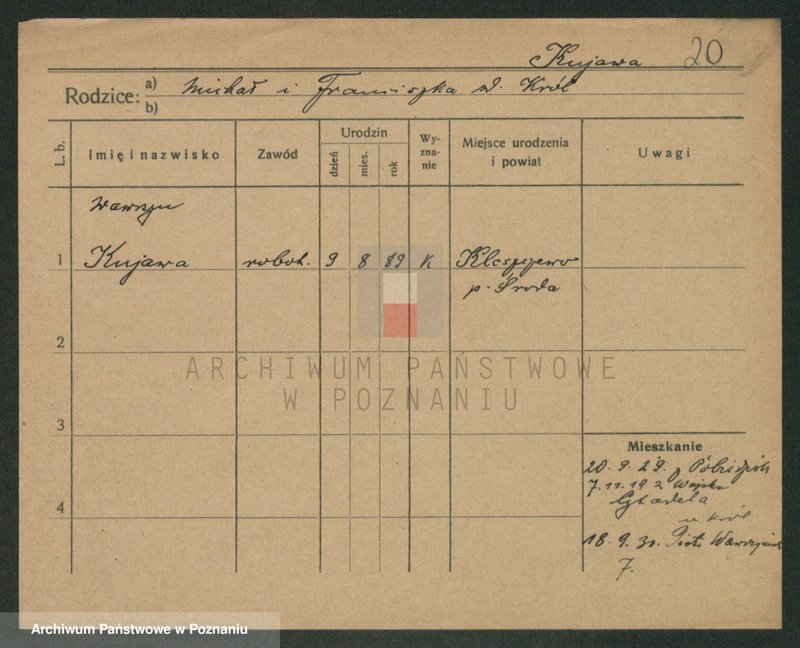 Kujawa 20
Rodzice: a) Michał i Franciszka d. Król
b)
L. b.
Imię i nazwisko
Zawód
Urodzin
dzień
mies.
rok
Wy-
zna-
nie
Miejsce urodzenia
i powiat
Uwagi
Wawrzyn
1 Kujawa robot. 9 8 89 K
p. Środa
2
ARCHIWUM PAŃSTWOWE
W POZNANIU
3
Mieszkanie
20. 9. 29.
7. 11. 19 z Wojska
4
Cytadela
u Król
18. 9. 30. Piotr
7.
Archiwum Państwowe w Poznaniu